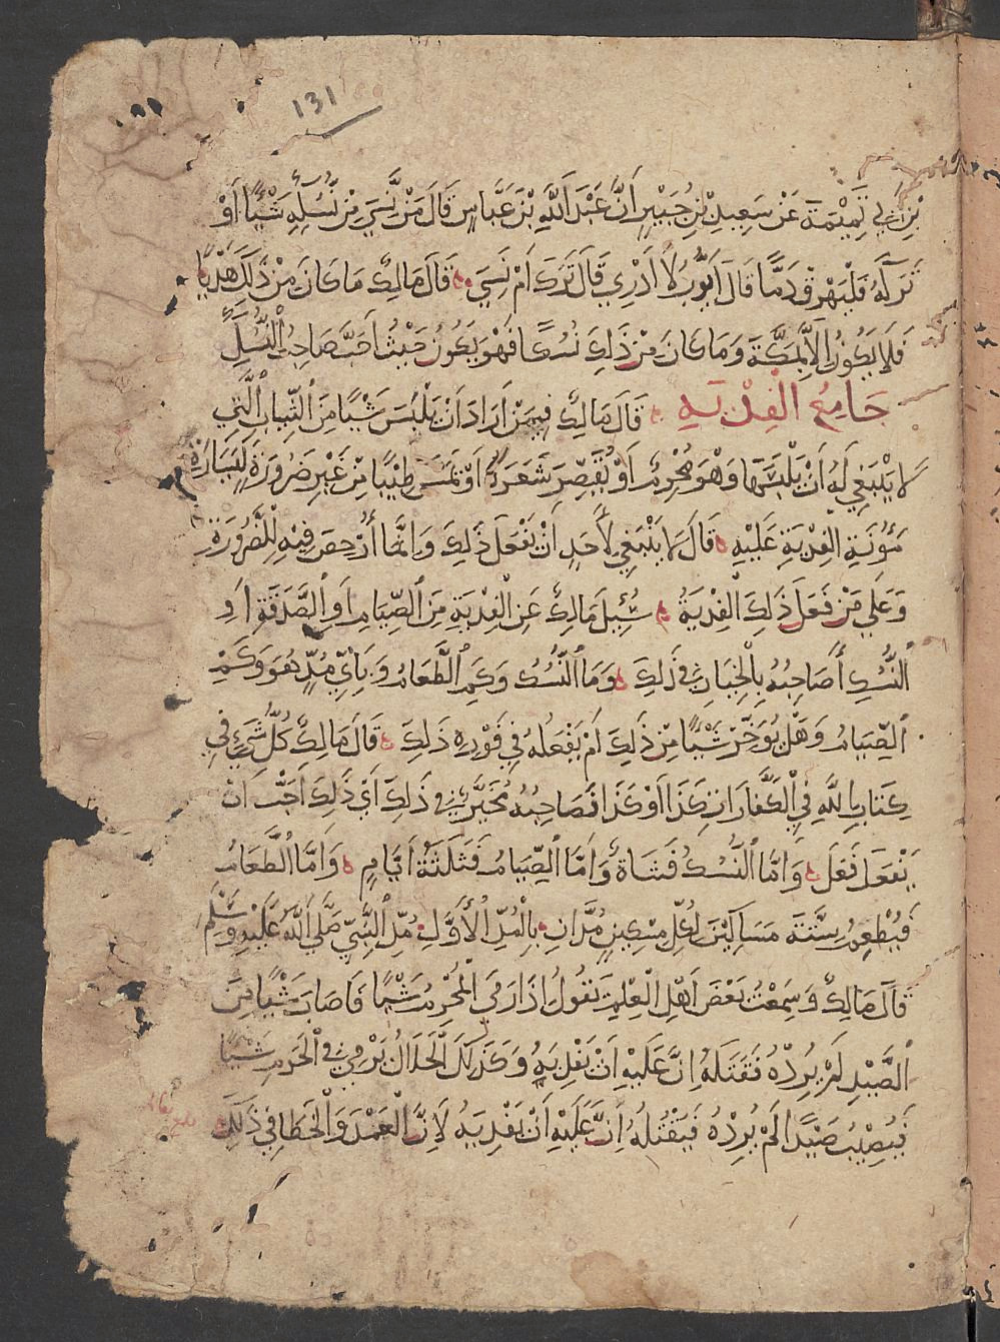 131
بْنِ أَبِي تَمِيْمَةَ عَنْ سَعِيدِ بْنِ جُبَيْرٍ أَنَّ عَبْدَ اللَّهِ بْنَ عَبَّاسٍ قَالَ مَنْ نَسِيَ مِنْ نُسُكِهِ شَيْئًا أَوْ
تَرَكَهُ فَلْيُهْرِقْ دَمًا قَالَ أَيُّوبُ لَا أَدْرِي قَالَ تَرَكَ أَمْ نَسِيَ قَالَ مَالِكٌ مَا كَانَ مِنْ ذَلِكَ هَدْيًا
فَلَا يَكُونُ إِلَّا بِمَكَّةَ وَمَا كَانَ مِنْ ذَلِكَ نُسُكًا فَهُوَ يَكُونُ حَيْثُ أَحَبَّ صَاحِبُ النُّسُكِ
جَامِعُ الْفِدْيَةِ قَالَ مَالِكٌ فِيمَنْ أَرَادَ أَنْ يَلْبَسَ شَيْئًا مِنَ الثِّيَابِ الَّتِي
لَا يَنْبَغِي لَهُ أَنْ يَلْبَسَهَا وَهُوَ مُحْرِمٌ أَوْ يُقَصِّرَ شَعَرَهُ أَوْ يَمَسَّ طِيْبًا مِنْ غَيْرِ ضَرُورَةٍ لِيَسَارَةِ
مَؤُنَةِ الْفِدْيَةِ عَلَيْهِ قَالَ لَا يَنْبَغِي لِأَحَدٍ أَنْ يَفْعَلَ ذَلِكَ وَإِنَّمَا أُرْخِصَ فِيهِ لِلضَّرُورَةِ
وَعَلَى مَنْ فَعَلَ ذَلِكَ الْفِدْيَةُ سُئِلَ مَالِكٌ عَنِ الْفِدْيَةِ مِنَ الصِّيَامِ أَوِ الصَّدَقَةِ أَوِ
النُّسُكِ أَصَاحِبُهُ بِالْخِيَارِ فِي ذَلِكَ وَمَا النُّسُكُ وَكَمِ الطَّعَامُ وَبِأَيِّ مُدٍّ هُوَ وَكَمِ
الصِّيَامُ وَهَلْ يُؤَخِّرُ شَيْئًا مِنْ ذَلِكَ أَمْ يَفْعَلُهُ فِي فَوْرِهِ ذَلِكَ قَالَ مَالِكٌ كُلُّ شَيْءٍ فِي
كِتَابِ اللَّهِ فِي الْكَفَّارَاتِ كَذَا أَوْ كَذَا فَصَاحِبُهُ مُخَيَّرٌ فِي ذَلِكَ أَيَّ ذَلِكَ أَحَبَّ أَنْ
يَفْعَلَ فَعَلَ وَأَمَّا النُّسُكُ فَشَاةٌ وَأَمَّا الصِّيَامُ فَثَلَثَةُ أَيَّامٍ وَأَمَّا الطَّعَامُ
فَيُطْعِمُ سِتَّةَ مَسَاكِيْنَ لِكُلِّ مِسْكِينٍ مُدَّانِ بِالْمُدِّ الْأَوَّلِ مُدِّ النَّبِيِّ صَلَّى اللَّهُ عَلَيْهِ وَسَلَّمَ
قَالَ مَالِكٌ وَسَمِعْتُ بَعْضَ أَهْلِ الْعِلْمِ يَقُولُ إِذَا رَمَى الْمُحْرِمُ شَيْئًا فَأَصَابَ شَيْئًا مِنَ
الصَّيْدِ لَمْ يُرِدْهُ فَقَتَلَهُ إِنَّ عَلَيْهِ أَنْ يَفْدِيَهُ وَكَذَلِكَ الْحَلَالُ يَرْمِي فِي الْحَرَمِ شَيْئًا
فَيُصِيْبُ صَيْدًا لَمْ يُرِدْهُ فَيَقْتُلُهُ إِنَّ عَلَيْهِ أَنْ يَفْدِيَهُ لِأَنَّ الْعَمْدَ وَالْخَطَأَ فِي ذَلِكَ